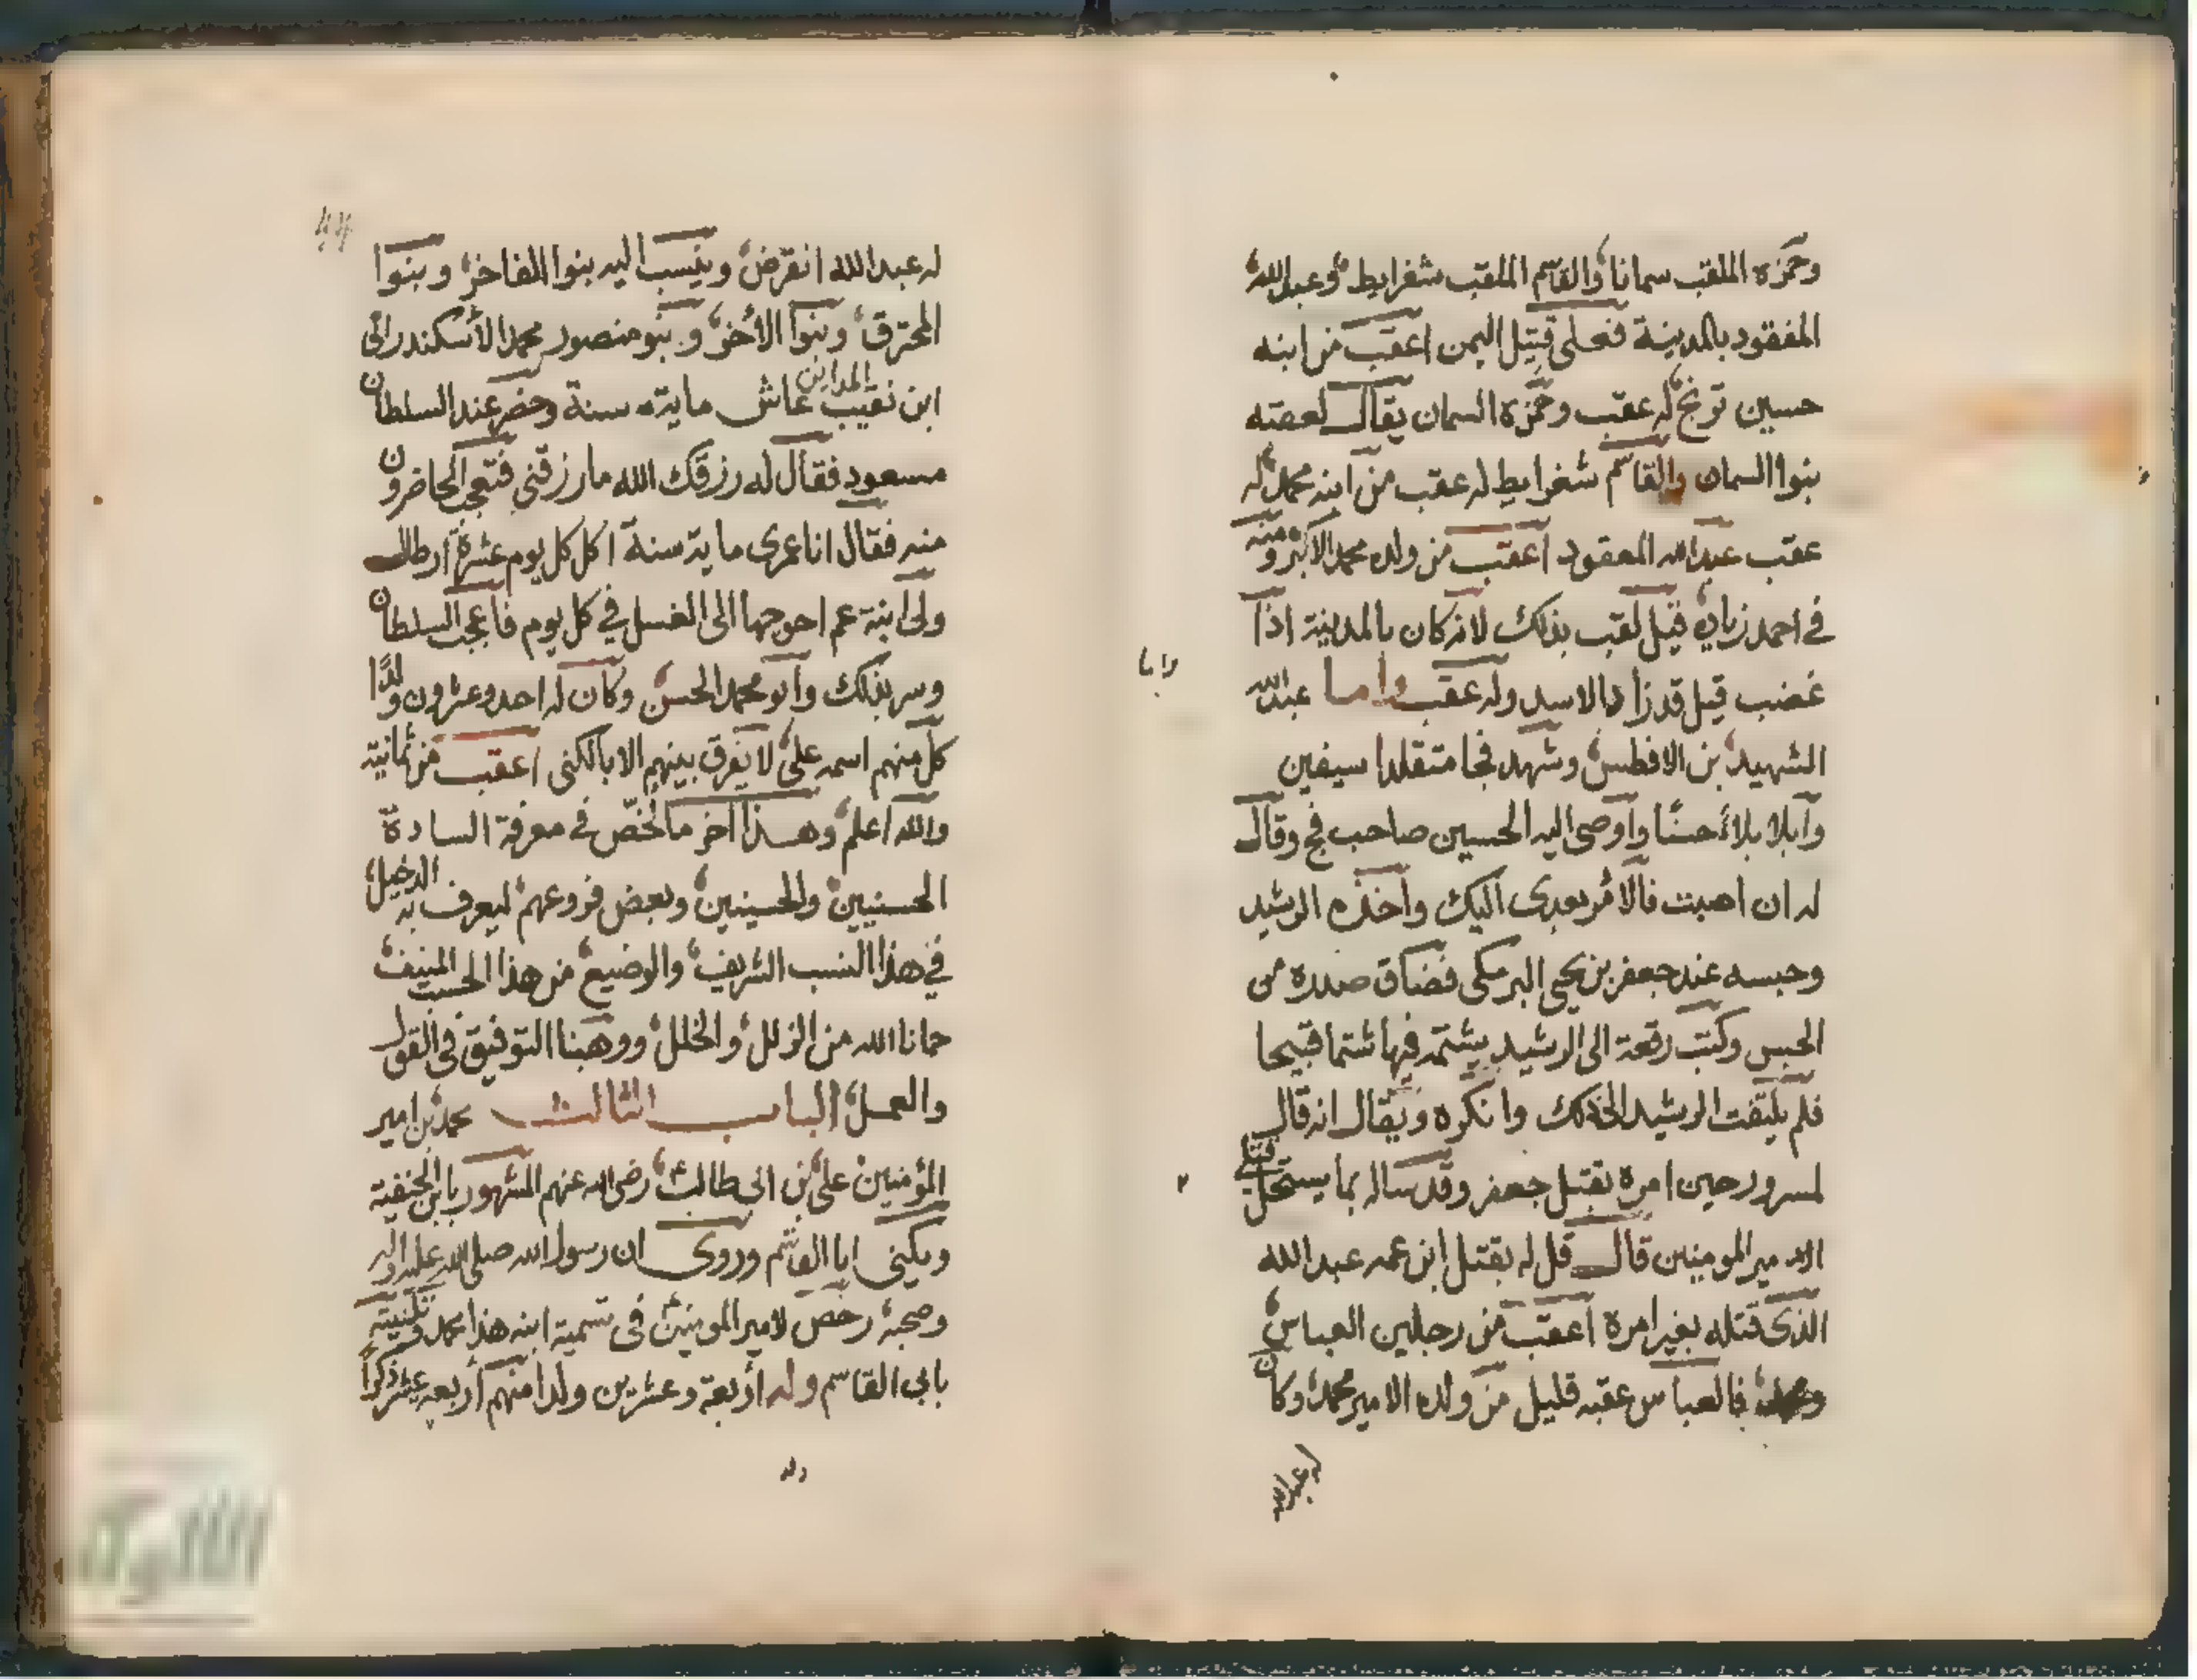 وحمزه الملقب سمانا والقاسم الملقب شغرابيط وعبدالله
المفقود بالمدينة فعلى قتيل اليمن اعقب من ابنه
حسين ترنج له عقب وحمزة السمان يقال لعقبه
بنوا السمان والقاسم شغرابيط له عقب من ابنه محمد له
عقب عبدالله المفقود أعقب من ولده محمد الاكبر ومنه
في احمد زباده قيل لقب بذلك لانه كان بالمدينة اذا
غضب قيل قد زأد الاسد وله عقب واما عبدالله
الشهيد بن الافطس وشهد فخا متقلدا سيفين
وأبلا بلاءً حسنًا وأوصى اليه الحسين صاحب فخ وقال
له ان اصبت فالأمر بعدى اليك وأخذه الرشيد
وحبسه عند جعفر بن يحيى البرمكى فضاق صدره من
الحبس وكتب رقعة الى الرشيد يشتمه فيها شتما قبيحا
فلم يلتفت الرشيد الى ذلك وانكره ويقال انه قال
لمسرور حين امره بقتل جعفر وقد ساله بما يستحل قتلى
الامير المومنين قال قل له بقتل ابن عمه عبدالله
الذى قتله بغير امره أعقب من رجلين العباس
ومحمد فالعباس عقبه قليل من ولده الامير محمد وكان
له عبدالله
له عبدالله انقرض وينسب اليه بنوا المفاخر وبنوا
المحترق وبنوا الأخر وبنو منصور محمد الأسكندرانى
ابن نقيب المداين عاش مايته سنة وحضر عند السلطان
مسعود فقال له رزقك الله ما رزقنى فتعجب الحاضرون
منه فقال انا عمرى ماية سنة اكل كل يوم عشرة أرطال
ولى ابنة عم احوجها الى الغسل في كل يوم فاعجب السلطان
وسر بذلك وأبو محمد الحسن وكان له احد وعشرون ولدًا
كل منهم اسمه على لا يفرق بينهم الا بالكنى اعقب من ثمانية
والله اعلم وهذا اخر ما لخص في معرفة السادة
الحسنيين والحسينين وبعض فروعهم ليعرف به الدخيل
في هذا النسب الشريف والوضيع من هذا الحسب المنيف
حمانا الله من الزلل والخلل ووهبنا التوفيق فى القول
والعمل الباب الثالث محمد بن امير
المؤمنين على بن ابى طالب رضى الله عنهم المشهور بابن الحنفية
ويكنى ابا القاسم وروى ان رسول الله صلى الله عليه واله
وصحبه رخص لامير المومنين فى تسمية ابنه هذا محمد وتكنيته
بابى القاسم وله أربعة وعشرين ولدا منهم أربعة عشر ذكرا
وله